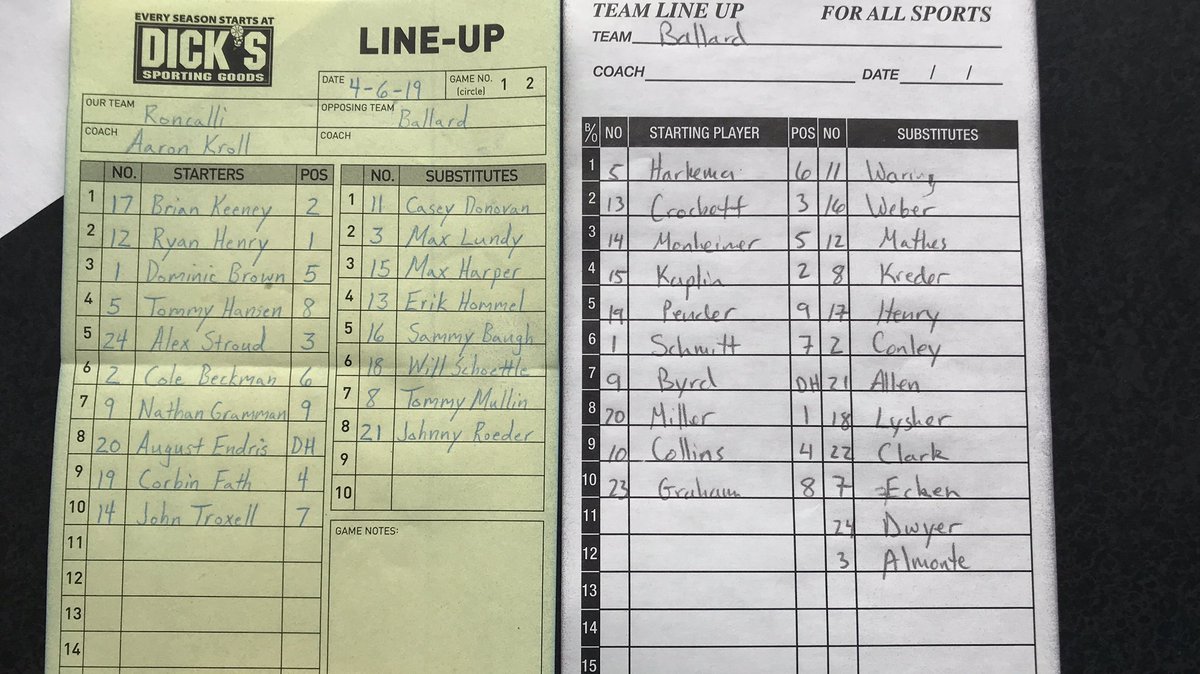 EVERY SEASON STARTS AT
DICK'S
SPORTING GOODS
LINE-UP
DATE 4-6-19 GAME NO. (circle) 1 2
OUR TEAM Roncalli OPPOSING TEAM Ballard
COACH Aaron Kroll COACH
NO. STARTERS POS NO. SUBSTITUTES
1 17 Brian Keeney 2 1 11 Casey Donovan
2 12 Ryan Henry 1 2 3 Max Lundy
3 1 Dominic Brown 5 3 15 Max Harper
4 5 Tommy Hansen 8 4 13 Erik Hommel
5 24 Alex Stroud 3 5 16 Sammy Baugh
6 2 Cole Beckman 6 6 18 Will Schoettle
7 9 Nathan Gramman 9 7 8 Tommy Mullin
8 20 August Endris DH 8 21 Johnny Roeder
9 19 Corbin Fath 4 9
10 14 John Troxell 7 10
11 GAME NOTES:
12
13
14
TEAM LINE UP FOR ALL SPORTS
TEAM Ballard
COACH DATE / /
B/O NO STARTING PLAYER POS NO SUBSTITUTES
1 5 Harkema 6 11 Waring
2 13 Crockett 3 16 Weber
3 14 Monheimer 5 12 Mathes
4 15 Kaplin 2 8 Kreder
5 19 Pender 9 17 Henry
6 1 Schmitt 7 2 Conley
7 9 Byrd DH 21 Allen
8 20 Miller 1 18 Lysher
9 10 Collins 4 22 Clark
10 23 Graham 8 7 Ecken
11 24 Dwyer
12 3 Almonte
13
14
15